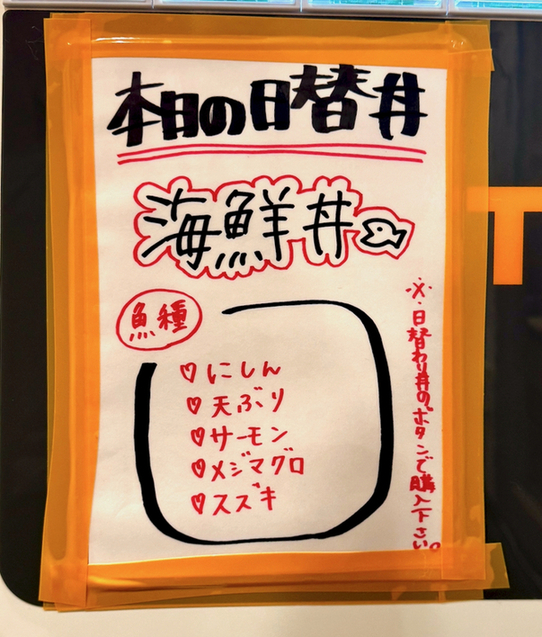 本日の日替丼
海鮮丼
魚種
♡にしん
♡天ぶり
♡サーモン
♡メジマグロ
♡スズキ
※日替わり丼のボタンで購入下さい。
T